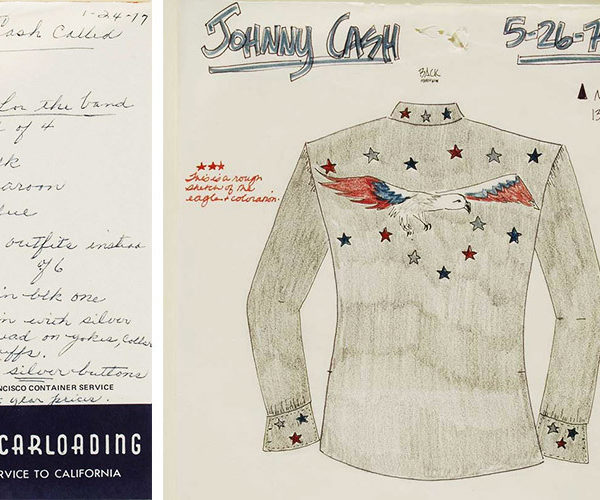 1-24-77
Cash Called
for the band
of 4
blk
maroon
blue
outfits instead
of 6
in blk one
in with silver
on yokes, collar
cuffs.
silver buttons
NCISCO CONTAINER SERVICE
year prices.
CARLOADING
RVICE TO CALIFORNIA
JOHNNY CASH
5-26-7
BACK
This is a rough
sketch of the
eagle + coloration.